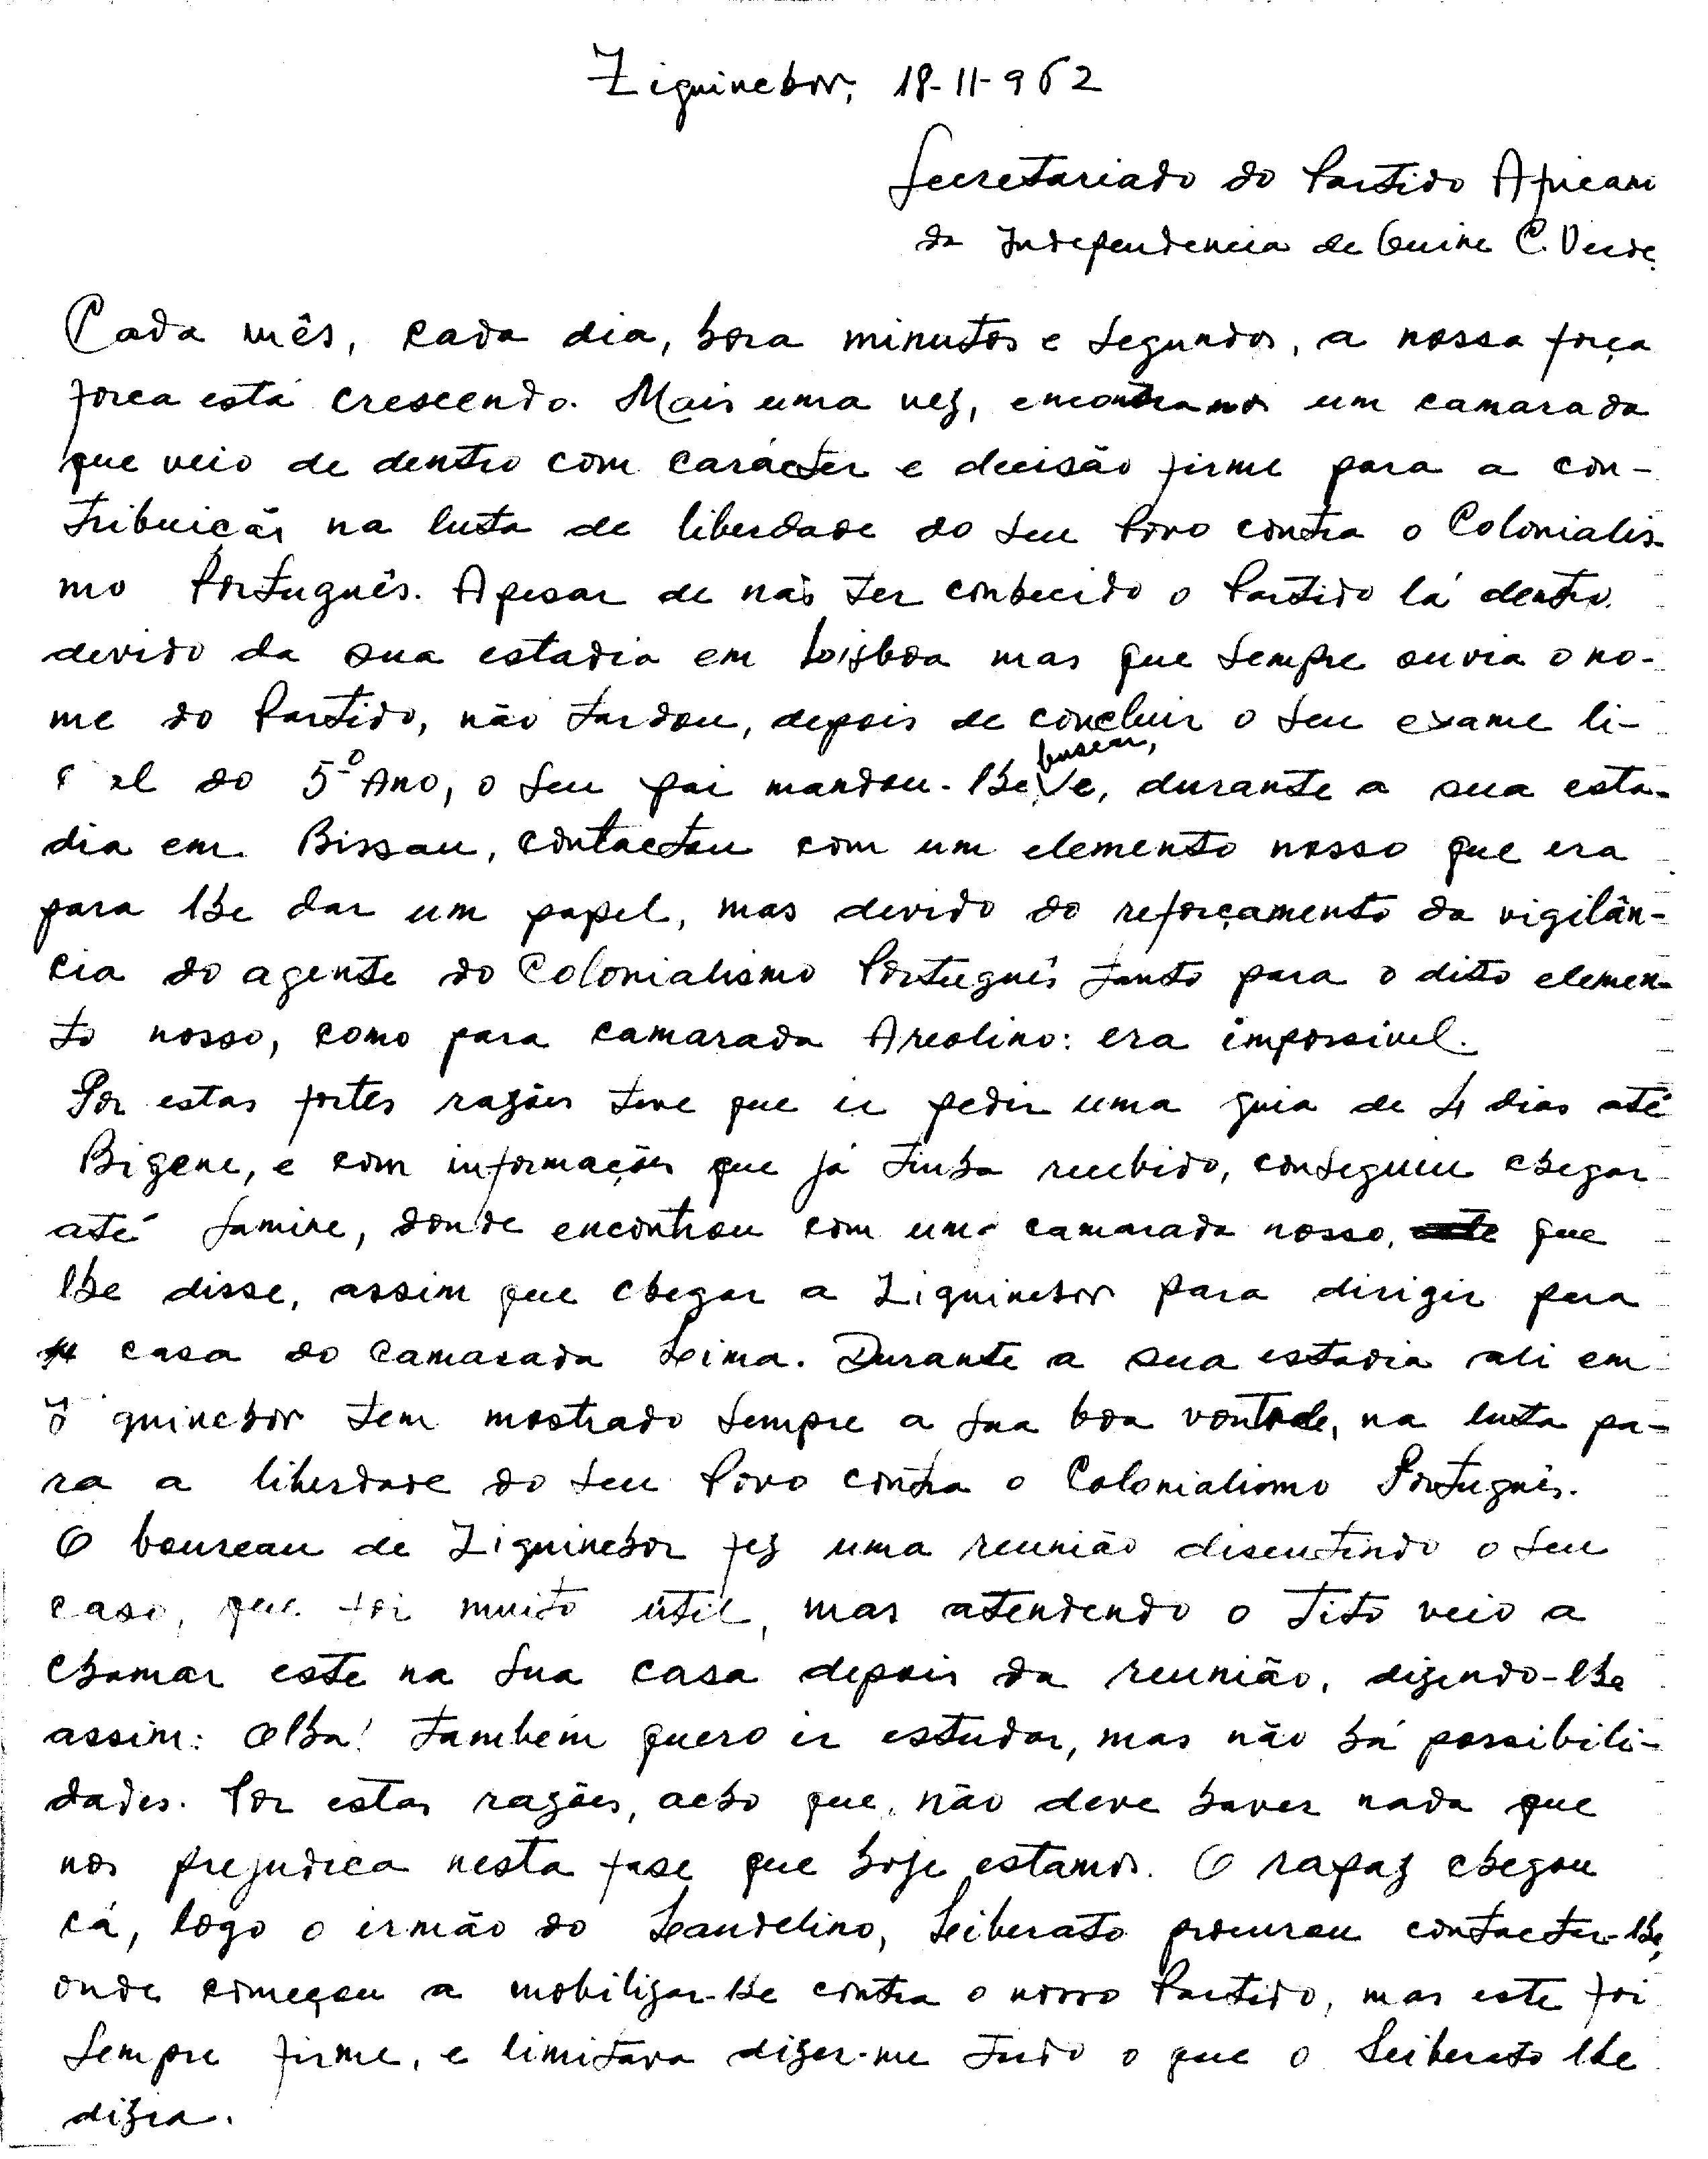 Ziguinchor, 18-11-962
Secretariado do Partido African
da Independencia de Guine C. Verde.
Cada mês, cada dia, hora minutos e segundos, a nossa força
força está crescendo. Mais uma vez, encontramos um camarada
que veio de dentro com carácter e decisão firme para a con-
tribuicão na luta de liberdade do seu Povo contra o Colonialis-
mo Português. Apesar de não ter conhecido o Partido lá dentro.
devido da sua estadia em Loisboa mas que sempre ouvia o no-
me do Partido, não tardou, depois de concluir o seu exame li-
el do 5º Ano, o seu pai mandou-lhe buscar, e, durante a sua esta-
dia em Bissau, contactou com um elemento nosso que era
para lhe dar um papel, mas devido do reforçamento da vigilân-
cia do agente do Colonialismo Português tanto para o dito elemen-
to nosso, como para camarada Areolino: era impossivel.
Por estas fortes razões teve que ir pedir uma guia de 4 dias até
Bigene, e com informações que já tinha recebido, conseguiu chegar
até Samine, donde encontrou com um camarada nosso, que
lhe disse, assim que chegar a Ziguinchor para dirigir para
casa do Camarada Leima. Durante a sua estadia ali em
guinchor tem mostrado sempre a sua boa vontade, na luta pa-
ra a liberdade do seu Povo contra o Colonialismo Português.
O boureau de Ziguinchor fez uma reunião discutindo o seu
caso, que foi muito útil, mas atendendo o Tito veio a
chamar este na sua casa depois da reunião, dizendo-lhe
assim: Olha! também quero ir estudar, mas não há possibili-
dades. Por estas razões, acho que, não deve haver nada que
nos prejudica nesta fase que hoje estamos. O rapaz chegou
cá, logo o irmão do Laudelino, Leiberato procurou contactar-lhe,
onde começou a mobilizar-lhe contra o nosso Partido, mas este foi
sempre firme, e limitava dizer-me tudo o que o Leiberato lhe
dizia.